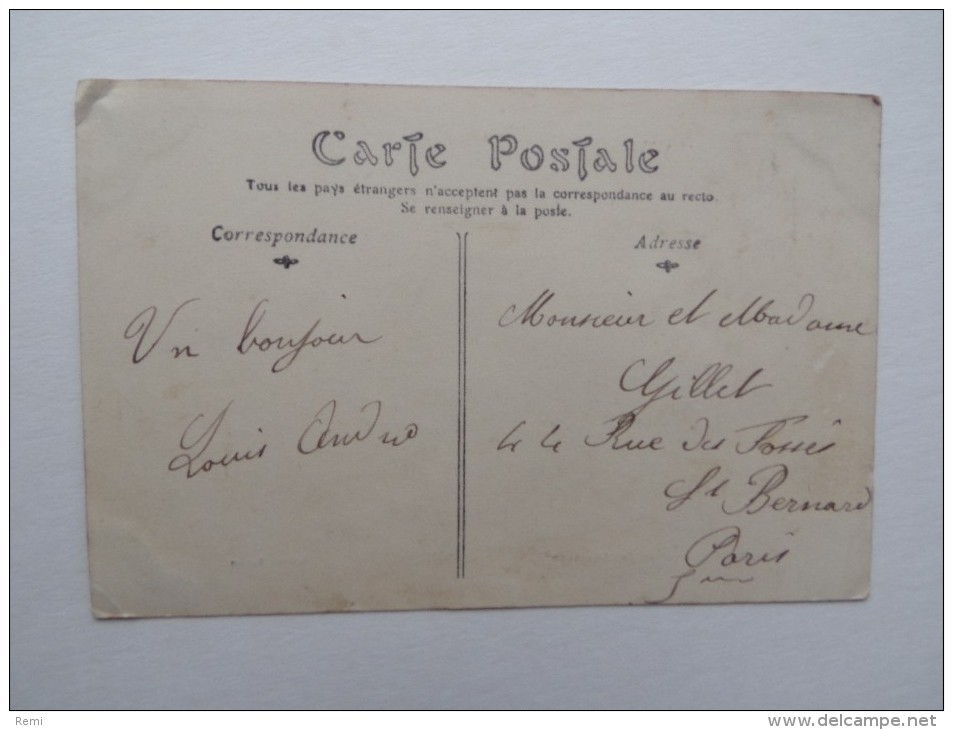 Carte Postale
Tous les pays étrangers n'acceptent pas la correspondance au recto.
Se renseigner à la poste.
Correspondance
Un bonjour
Louis André
Adresse
Monsieur et Madame
Gillet
44 Rue des Fossés
St Bernard
Paris
5me
Remi
www.delcampe.net